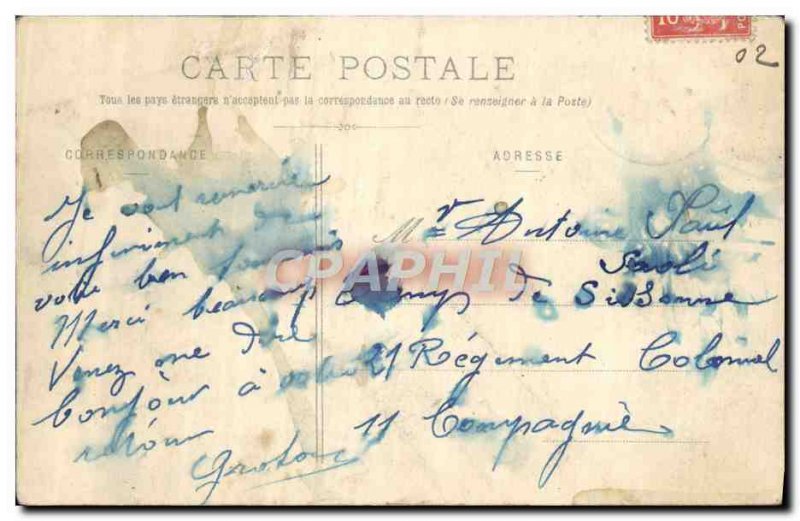 10
02
CARTE POSTALE
Tous les pays étrangers n'acceptent pas la correspondance au recto (Se renseigner à la Poste)
CORRESPONDANCE
Je vous remercie
infiniment de
votre bon
Merci beaucoup
Venez me dire
bonjour à votre
retour
ADRESSE
Mr Antoine Paul
Paoli
Camp de Sissonne
21 Régiment Colonial
11 Compagnie
CPARHIL